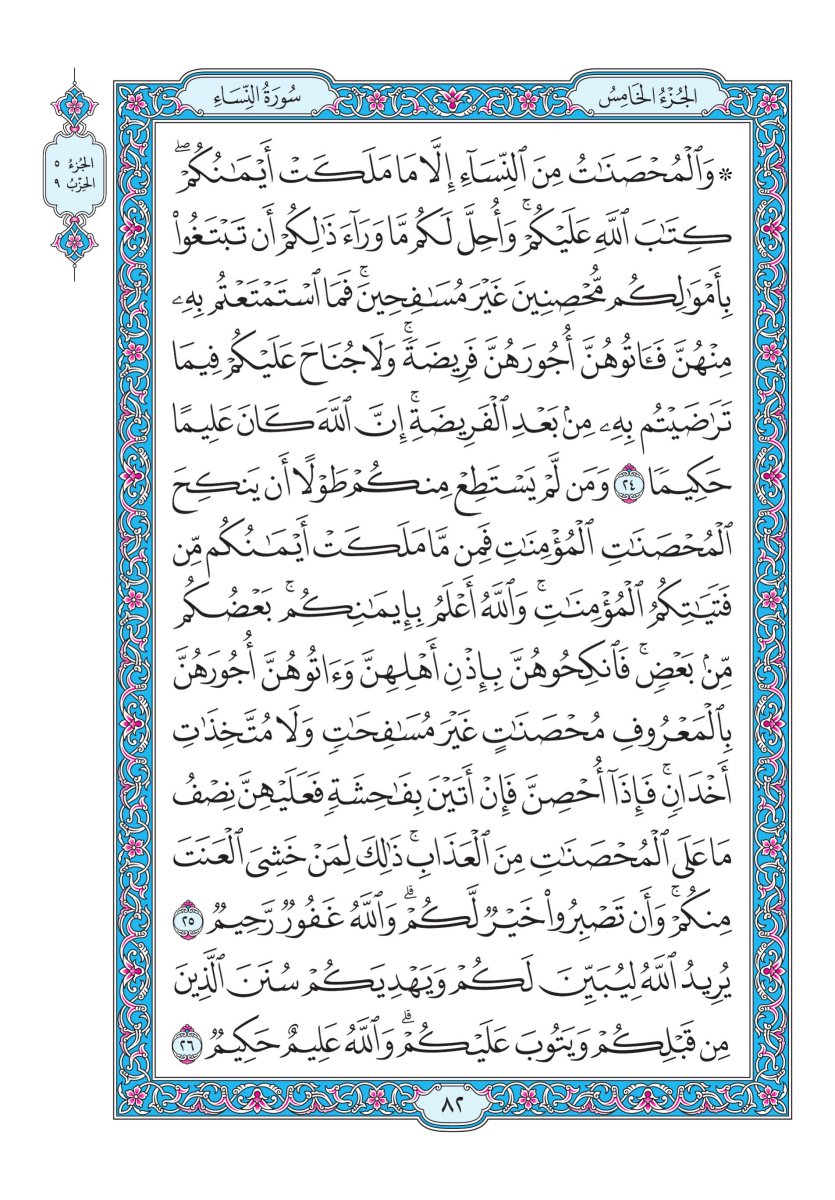 الجُزْءُ الخَامِسُ
سُورَةُ النِّسَاءِ
الجُزءُ ٥
الحِزْبُ ٩
۞ وَٱلْمُحْصَنَٰتُ مِنَ ٱلنِّسَآءِ إِلَّا مَا مَلَكَتْ أَيْمَٰنُكُمْۖ
كِتَٰبَ ٱللَّهِ عَلَيْكُمْۚ وَأُحِلَّ لَكُم مَّا وَرَآءَ ذَٰلِكُمْ أَن تَبْتَغُوا۟
بِأَمْوَٰلِكُم مُّحْصِنِينَ غَيْرَ مُسَٰفِحِينَۚ فَمَا ٱسْتَمْتَعْتُم بِهِۦ
مِنْهُنَّ فَـَٔاتُوهُنَّ أُجُورَهُنَّ فَرِيضَةًۚ وَلَا جُنَاحَ عَلَيْكُمْ فِيمَا
تَرَٰضَيْتُم بِهِۦ مِنۢ بَعْدِ ٱلْفَرِيضَةِۚ إِنَّ ٱللَّهَ كَانَ عَلِيمًا
حَكِيمًا ٢٤ وَمَن لَّمْ يَسْتَطِعْ مِنكُمْ طَوْلًا أَن يَنكِحَ
ٱلْمُحْصَنَٰتِ ٱلْمُؤْمِنَٰتِ فَمِن مَّا مَلَكَتْ أَيْمَٰنُكُم مِّن
فَتَيَٰتِكُمُ ٱلْمُؤْمِنَٰتِۚ وَٱللَّهُ أَعْلَمُ بِإِيمَٰنِكُمۚ بَعْضُكُم
مِّنۢ بَعْضٍۚ فَٱنكِحُوهُنَّ بِإِذْنِ أَهْلِهِنَّ وَءَاتُوهُنَّ أُجُورَهُنَّ
بِٱلْمَعْرُوفِ مُحْصَنَٰتٍ غَيْرَ مُسَٰفِحَٰتٍ وَلَا مُتَّخِذَٰتِ
أَخْدَانٍۚ فَإِذَآ أُحْصِنَّ فَإِنْ أَتَيْنَ بِفَٰحِشَةٍ فَعَلَيْهِنَّ نِصْفُ
مَا عَلَى ٱلْمُحْصَنَٰتِ مِنَ ٱلْعَذَابِۚ ذَٰلِكَ لِمَنْ خَشِىَ ٱلْعَنَتَ
مِنكُمْۚ وَأَن تَصْبِرُوا۟ خَيْرٌ لَّكُمْۗ وَٱللَّهُ غَفُورٌ رَّحِيمٌ ٢٥
يُرِيدُ ٱللَّهُ لِيُبَيِّنَ لَكُمْ وَيَهْدِيَكُمْ سُنَنَ ٱلَّذِينَ
مِن قَبْلِكُمْ وَيَتُوبَ عَلَيْكُمْۗ وَٱللَّهُ عَلِيمٌ حَكِيمٌ ٢٦
٨٢